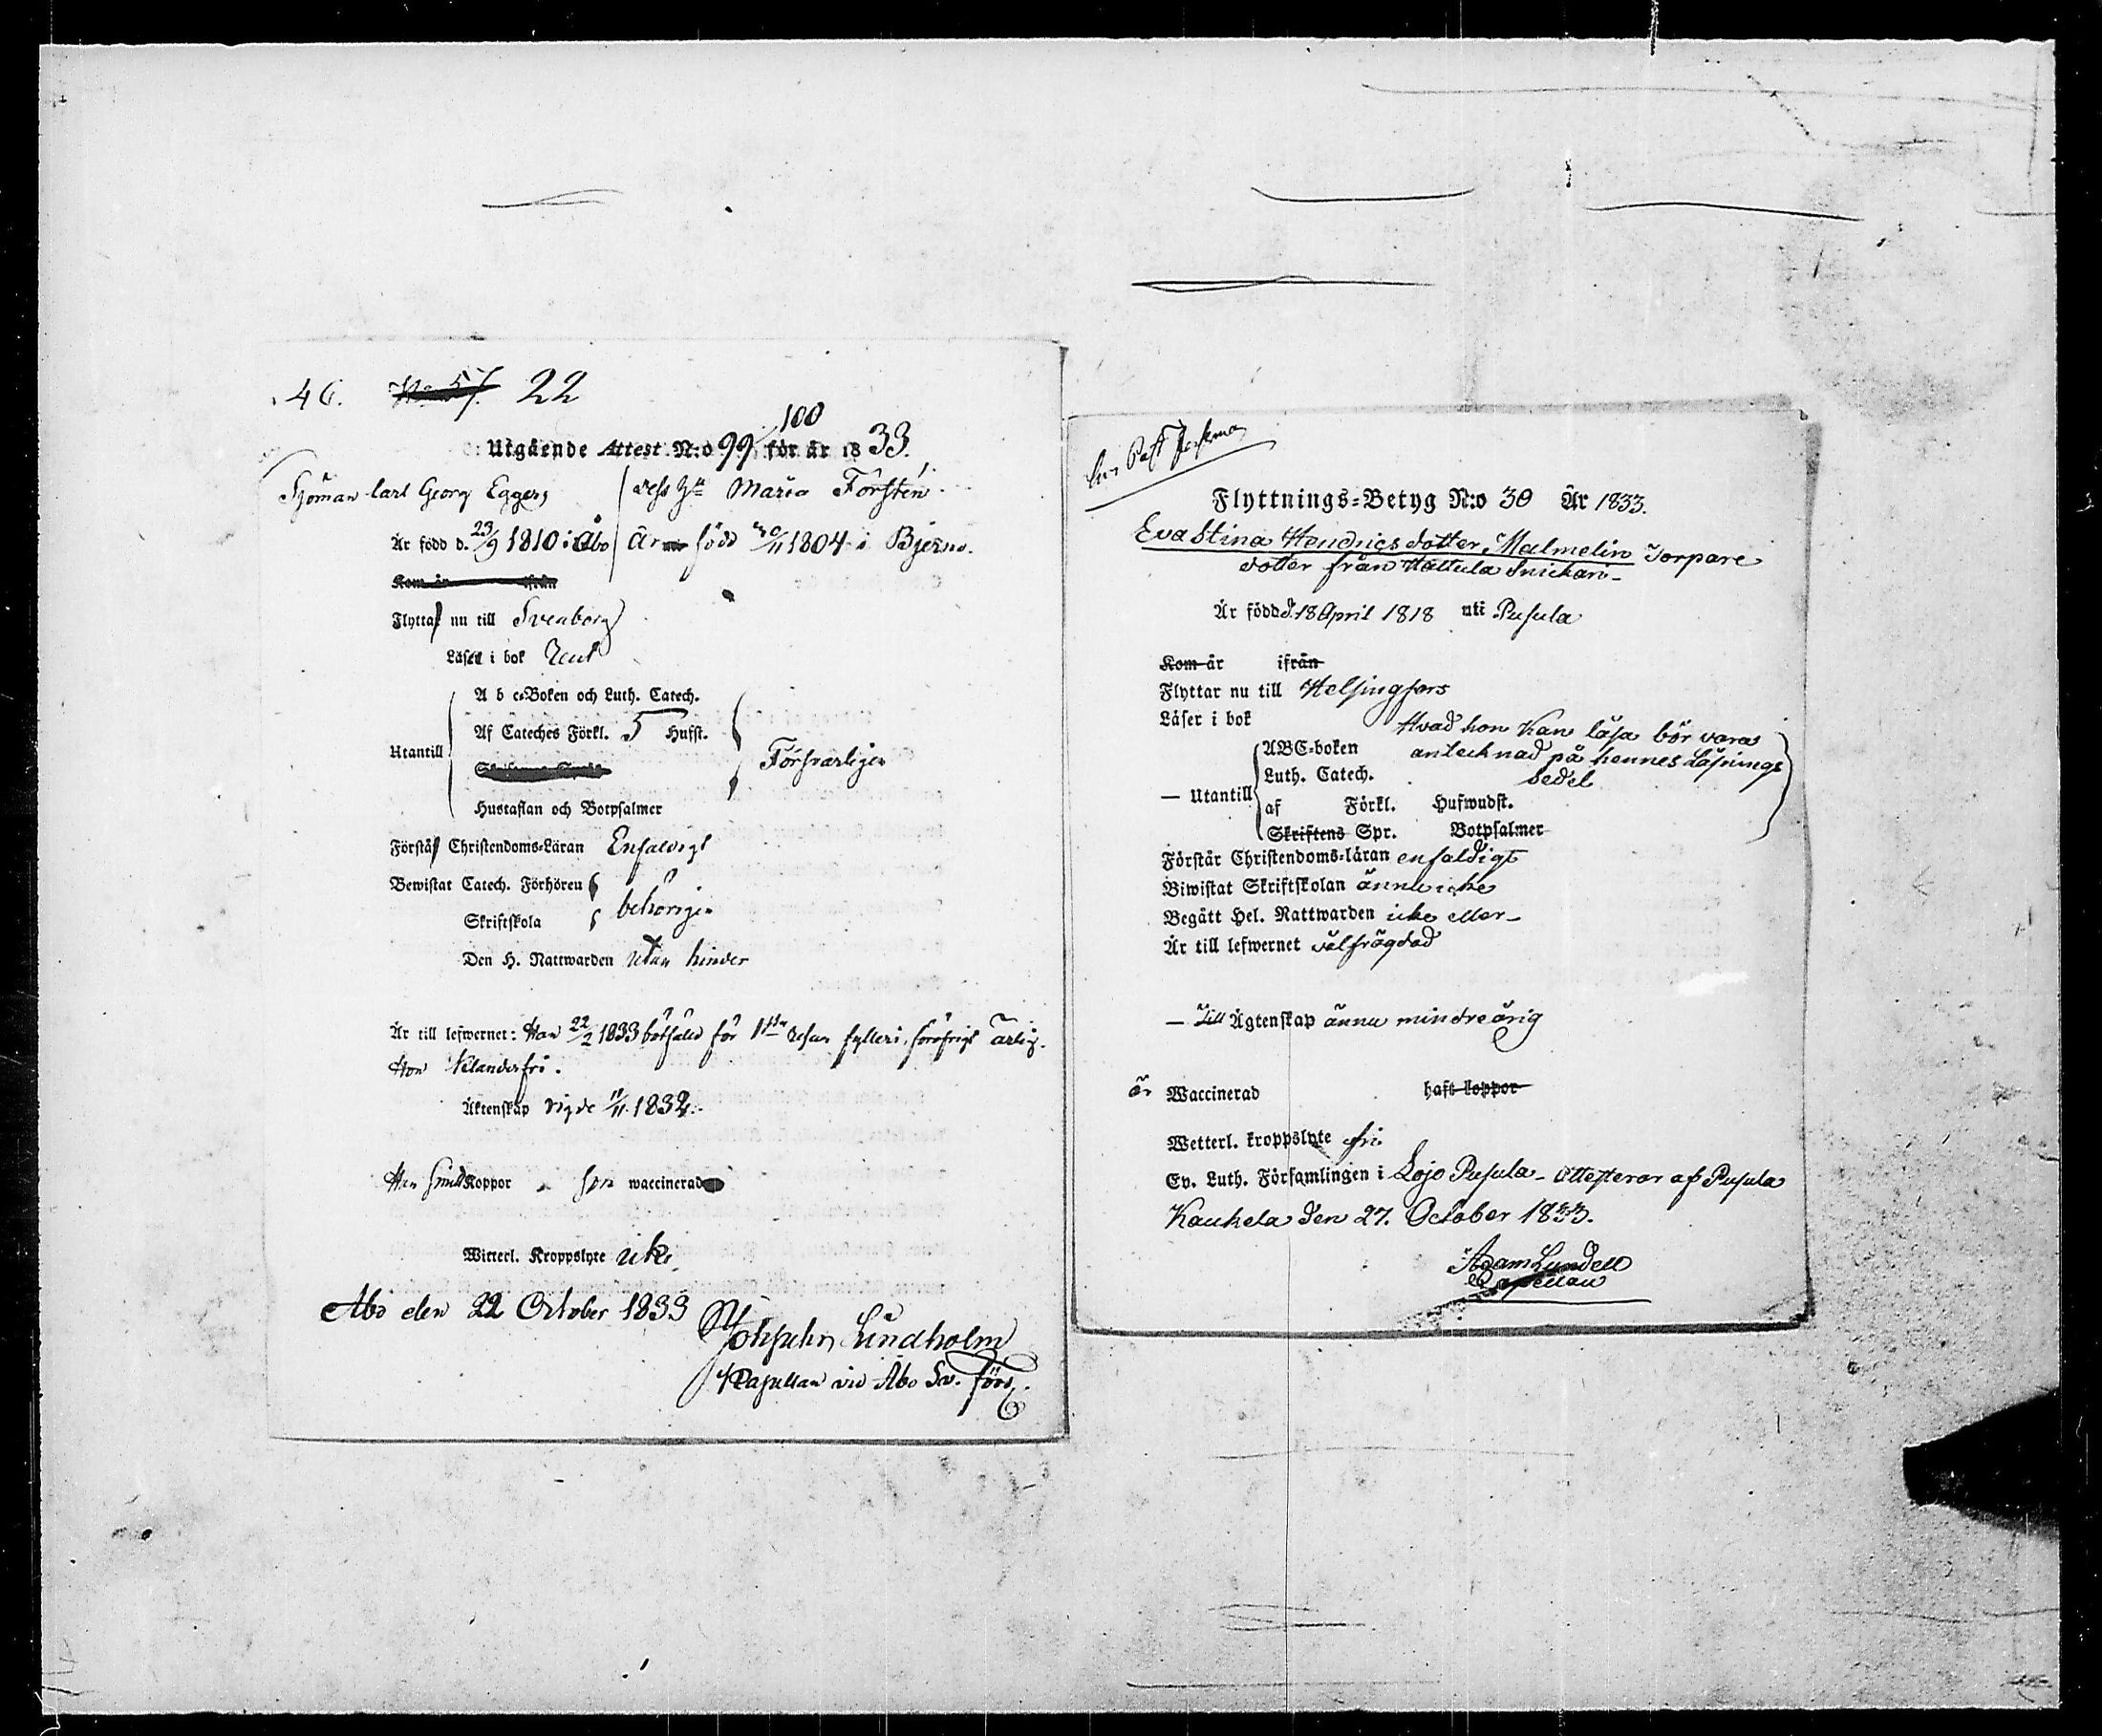 46. No 57. 22
100
Utgående Attest N:o 99 för år 1833.
Sjöman Carl Georg Eggers
Är född d. 23/9 1810 i Åbo
dess Hu Maria Forstén
är född 20/11 1804 i Bjerno.
Kom år ifrån
Flytta nu till Sveaborg
Läser i bok Rent
Utantill
A b c-Boken och Luth. Catech.
Af Cateches Förkl. 5 Hufst.
Hustaflan och Botpsalmer
Försvarligen
Förstå Christendoms-Läran Enfaldigt
Bewistat Catech. Förhören
Skriftskola
behörigen
Den H. Nattwarden utan hinder
Är till lefwernet: Han 22/2 1833 botfäld för 1sta resan fylleri, för öfrigt ärlig.
Hon klanderfri.
Äktenskap vigde 11/11 1832.
Han haft Koppor hon waccinerad
Witterl. Kroppslyte icke.
Åbo den 22 October 1833
Lindholm
Kapellan vid Åbo Sv. Förs.
Flyttnings-Betyg N:o 30 År 1833.
Eva Stina Hendricsdotter Malmelin Torpare
dotter från Hattula Snickari
Är född d. 18 April 1818 uti Pusula
Kom år ifrån
Flyttar nu till Helsingfors
Läser i bok
Hvad hon kan läsa bör vara
antecknad på hennes Läsnings
sedel
— Utantill
ABC-boken
Luth. Catech.
af Förkl. Hufwudst.
Skriftens Spr. Botpsalmer
Förstår Christendoms-läran enfaldigt
Biwistat Skriftskolan ännu icke
Begått Hel. Nattwarden icke eller
Är till lefwernet välfrägdad
— Till Ägtenskap ännu mindreårig
är Waccinerad haft koppor
Wetterl. kroppslyte fri
Ev. Luth. Församlingen i Lojo Pusula - Attesterar af Pusula
Kaukela den 27. October 1833.
Adam Lundell
Capellan